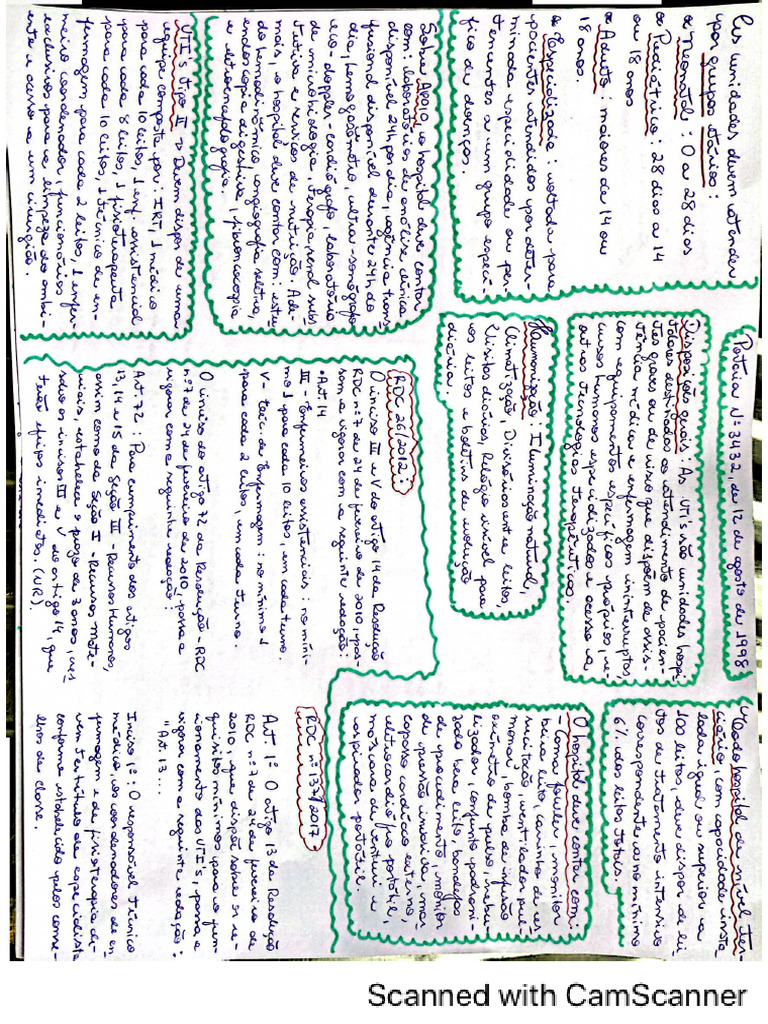 As unidades devem atender
por grupos etários:
Neonatal: 0 a 28 dias
Pediátrico: 28 dias a 14
ou 18 anos
Adulto: maiores de 14 ou
18 anos.
Especializada: voltada para
pacientes atendidos por deter-
minada especialidade ou per-
tencentes a um grupo especí-
fico de doenças.
Sobre Apoio, o hospital deve contar
com: laboratórios de análise clínica
disponível 24h por dia, agência trans
fusional disponível durante 24h do
dia, hemogasômetro, ultra-sonógrafo
eco-doppler-cardiógrafo, laboratório
de microbiologia, terapia renal subs
titutiva e serviços de nutrição. Ade-
mais, o hospital deve contar com: estu
do hemodinâmico, angiografia seletiva,
endoscopia digestiva, fibroncoscopia
e eletroencefalografia.
UTI's tipo II → Devem dispor de uma
equipe composta por: 1RT, 1 médico
para cada 10 leitos, 1 enf. assistencial
para cada 8 leitos, 1 fisioterapeuta
para cada 10 leitos, 1 técnico de en-
fermagem para cada 2 leitos, 1 enfer-
meiro coordenador, funcionários
exclusivos para a limpeza do ambi-
ente e acesso a um cirurgião.
Portaria Nº 3432, de 12 de agosto de 1998
Disposição gerais: As UTI's são unidades hospi-
talares destinadas ao atendimento de pacien-
tes graves ou de risco que dispõem de assis-
tência médica e enfermagem ininterruptos,
com equipamentos específicos próprios, re-
cursos humanos especializados e acesso a
outras tecnologias terapêuticas.
Humanização: Iluminação natural,
Climatização, Divisórias entre leitos,
Visitas diárias, Relógio visível para
os leitos e boletins de evolução
diária.
RDC 26/2012:
O inciso III e V do artigo 14 da Resolução
RDC nº 7 de 24 de fevereiro de 2010, pas-
sam a vigorar com a seguinte redação:
• Art. 14
III - Enfermeiros assistenciais: no míni-
mo 1 para cada 10 leitos, em cada turno.
V - tecs. de Enfermagem: no mínimo 1
para cada 2 leitos, em cada turno.
O inciso do artigo 72 da Resolução - RDC
nº 7 de 24 de fevereiro de 2010, passa a
vigorar com a seguinte redação:
Art. 72. Para cumprimento dos artigos
13, 14 e 15 da Seção III - Recursos Humanos,
assim como da Seção I - Recursos Mate-
riais, estabelece o prazo de 3 anos, res-
salva os incisos III e V do artigo 14, que
terão efeitos imediatos. (NR).
Todo hospital de nível ter-
ciário, com capacidade insta
lada igual ou superior a
100 leitos, deve dispor de lei
tos de tratamento intensivo
correspondente a no mínimo
6% dos leitos totais.
O hospital deve contar com:
- Cama fowler, monitor
beira leito, carrinho de res
suscitação, ventilador pul
monar, bomba de infusão
oxímetro de pulso, nebu-
lizador, conjunto padroni-
zado beira leito, bandejas
de procedimento, monitor
de pressão invasiva, mar
capasso cardíaco externo,
eletrocardiógrafo portátil,
máscara de venturi e
respirador portátil.
RDC nº 137/2017:
Art. 1º O artigo 13 da Resolução
RDC nº 7 de 24 de fevereiro de
2010, que dispõe sobre os re-
quisitos mínimos para o fun-
cionamento das UTI's, passa a
vigorar com a seguinte redação:
"Art. 13...
Inciso 1º: O responsável técnico
médico, os coordenadores de en
fermagem e de fisioterapia de-
vem ter título de especialista
conforme estabelecido pelos conse-
lhos de classe.
Scanned with CamScanner